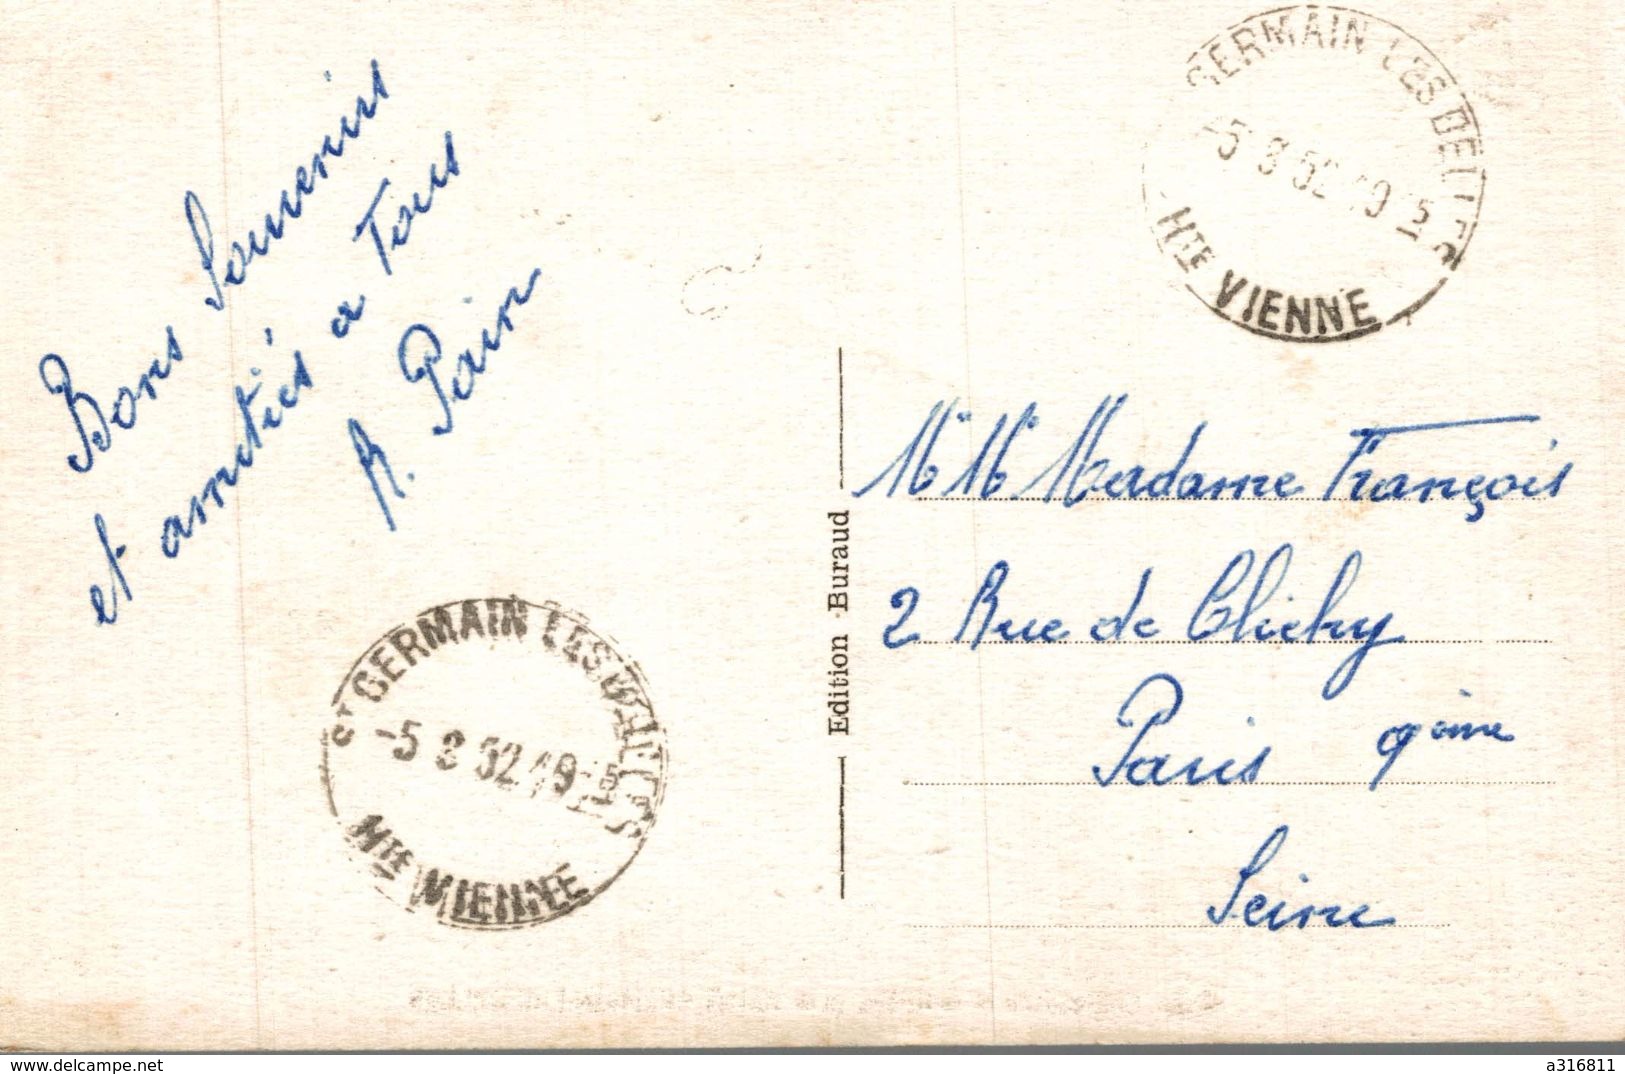 Bons Souvenirs
et amitiés a Tous
A. Pain
St GERMAIN LES BELLES
-5 8 52 19 15
Hte VIENNE
Edition Buraud
GERMAIN LES BELLES
-5 8 52 19 15
Hte VIENNE
Mr Mr Madame François
2 Rue de Clichy
Paris 9ième
Seine
www.delcampe.net
a316811